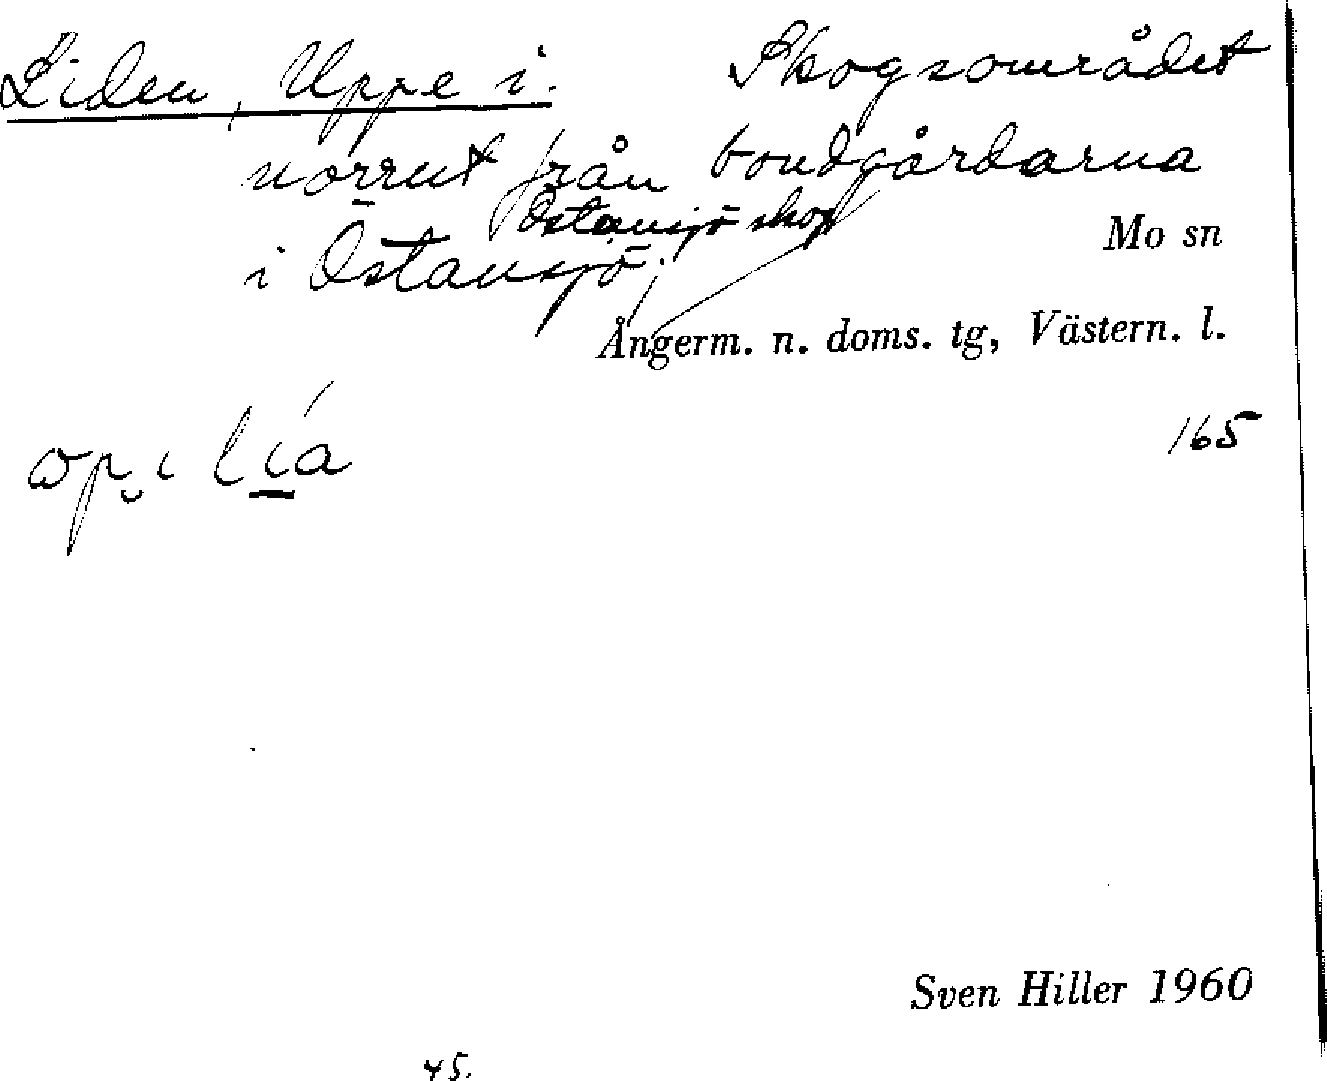 Liden, Uppe i. Skogsområdet
norrut från bondgårdarna
Östansjö skog
i Östansjö.
Mo sn
Ångerm. n. doms. tg, Västern. l.
165
ωp i lía
Sven Hiller 1960
45.